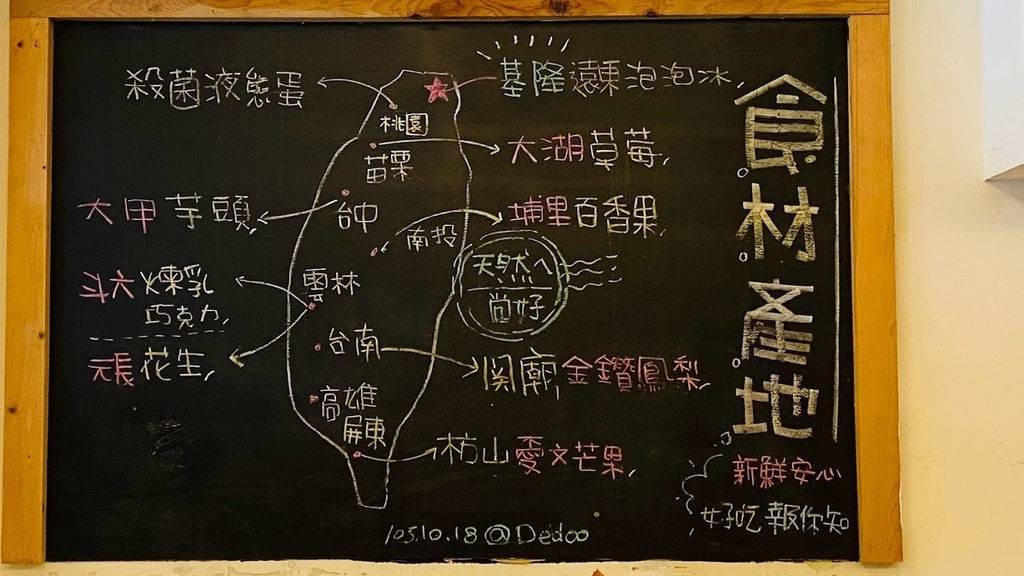 食材產地
殺菌液態蛋
基隆遠東泡泡冰
桃園
大湖草莓
苗栗
大甲芋頭
台中
埔里百香果
南投
天然へ
尚好
斗六煉乳
巧克力
雲林
元長花生
台南
関廟金鑽鳳梨
高雄
屏東
枋山愛文芒果
新鮮安心
好吃報你知
105.10.18@Dedoo